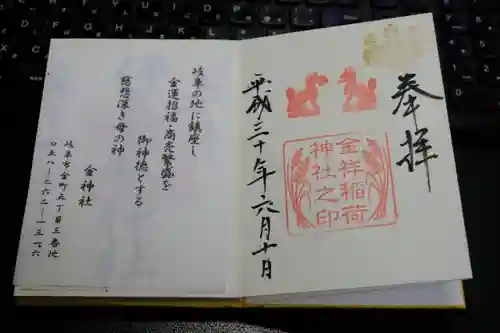 奉拝
金祥稲荷
神社之印
平成三十年六月十日
岐阜の地に鎮座し
金運招福・商売繁盛を
御神徳とする
慈悲深き母の神
金神社
岐阜市金町五丁目三番地
〇五八-二六二-一三一六